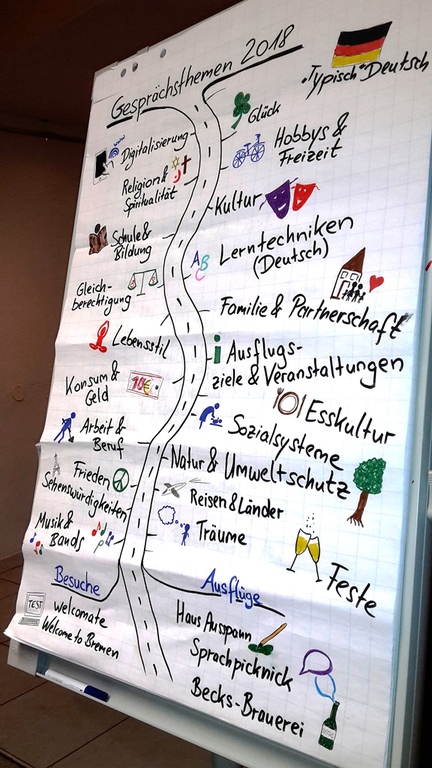 Gesprächsthemen 2018
"Typisch" Deutsch
Glück
Digitalisierung
Hobbys &
Freizeit
Religion &
Spiritualität
Kultur
Schule &
Bildung
ABC
Lerntechniken
(Deutsch)
Gleich-
berechtigung
Familie & Partnerschaft
Lebensstil
i
Ausflugs-
ziele & Veranstaltungen
Konsum &
Geld
10€
Esskultur
Arbeit &
Beruf
Sozialsysteme
Natur & Umweltschutz
Frieden
Sehenswürdigkeiten
Reisen & Länder
Träume
Musik &
Bands
Feste
Besuche
TEST
welcomate
Welcome to Bremen
Ausflüge
Haus Ausspann
Sprachpicknick
Becks-Brauerei